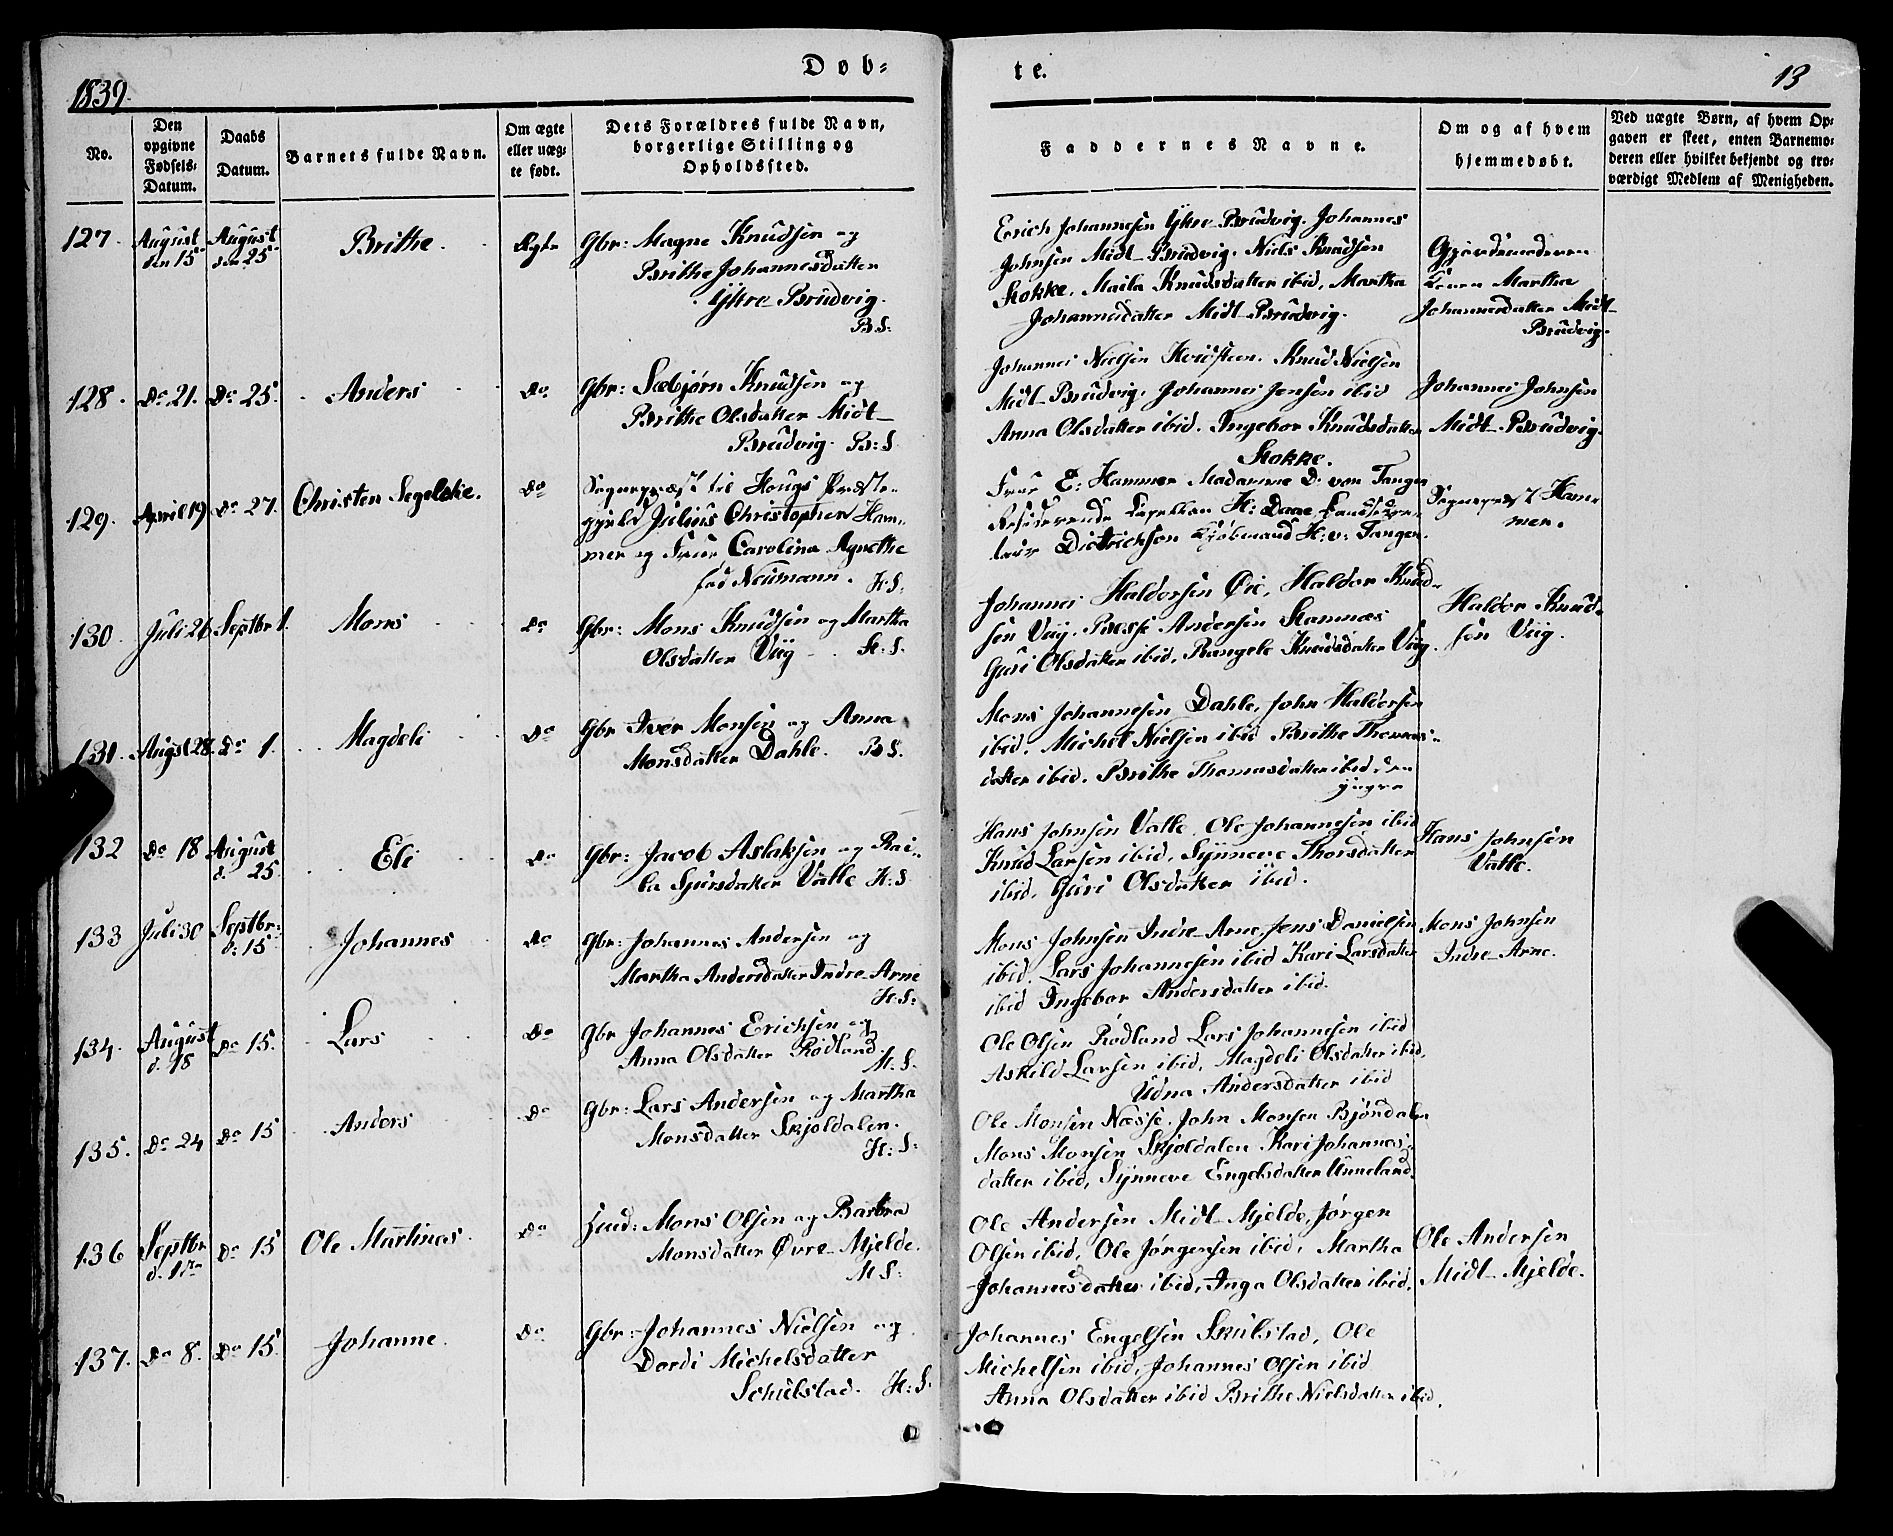 1839.
Døb-
te.
13
No.
Den opgivne Fødsels-Datum.
Daabs Datum.
Barnets fulde Navn.
Om ægte eller uægte født.
Dets Forældres fulde Navn, borgerlige Stilling og Opholdssted.
Faddernes Navne.
Om og af hvem hjemmedøbt.
Ved uægte Børn, af hvem Opgaven er skeet, enten Barnemoderen eller hvilket bekjendt og troværdigt Medlem af Menigheden.
127. August den 15 August den 25 Brithe. Ægte
Gbr: Magne Knudsen og
Brithe Johannesdatter
Ytre Brudvig.
B.S.
Erich Johannesen Ytre Brudvig. Johannes
Johnsen Midt Brudvig. Niels Knudsen
Stokke. Maila Knudsdatter ibid, Martha
Johannesdatter Midt Brudvig.
Gjordemoderen
Martha
Johannesdatter Midt
Brudvig.
128. Do 21. Do 25. Anders Do
Gbr: Sæbjørn Knudsen og
Brithe Olsdatter Midt
Brudvig. B:S.
Johannes Nielsen Knud Nielsen
Midt Brudvig. Johannes Jensen ibid
Anna Olsdatter ibid. Ingebor Knudsdatter
Stokke.
Johannes Johnsen
Midt Brudvig.
129. April 19 Do 27. Christen Segelcke. Do
Sognepræst til Hougs Præste-
gjeld Julius Christopher Ham-
mer og Frue Carolina Agnethe
fød Neumann. H:S.
Frue E: Hammer Madamme D. von Tangen
Residerende Capellan H: Daae
Dietrichson Kjøbmand H: v: Tangen.
Sognepræst Ham-
mer.
130. Juli 26 Septbr 1. Mons Do
Gbr: Mons Knudsen og Martha
Olsdatter Viig
Johannes Haldorsen Øie, Haldor Knud-
sen Viig. Brosse Andersen Stamnæs
Guri Olsdatter ibid, Rangele Knudsdatter Viig.
Haldor Knud-
sen Viig.
131. Augst 28. Do 1. Magdeli Do
Gbr Iver Monsen og Anna
Monsdatter Dahle. B S.
Mons Johannesen Dahle, John Haldorsen
ibid, Michel Nielsen ibid Brithe Thomas-
datter ibid. Brithe Thomasdatter ibid, den
yngre
132 Do 18 August d. 25. Eli Do
Gbr: Jacob Aslaksen og Rai-
la Sjursdatter Valle H:S.
Hans Johnsen Valle. Ole Johannesen ibid
Knud Larsen ibid, Synneve Thorsdatter
ibid, Guri Olsdatter ibid.
Hans Johnsen
Valle.
133 Juli 30 Septbr: d: 15 Johannes Do
Gbr: Johannes Andersen og
Martha Andersdatter Indre Arne
H:S:
Mons Johnsen Indre Arne Jens Danielsen
ibid. Lars Johannesen ibid Kari Larsdatter
ibid Ingebor Andersdatter ibid.
Mons Johnsen
Indre Arne.
134. August d. 18 Do 15. Lars Do
Gbr Johannes Erichsen og
Anna Olsdatter Rødland.
H:S.
Ole Olsen Rødland Lars Johannesen ibid
Askild Larsen ibid, Magdeli Olsdatter ibid,
Udna Andersdatter ibid
135. Do 24 Do 15 Anders Do
Gbr: Lars Andersen og Martha
Monsdatter Skjoldalen.
H:S:
Ole Monsen Næsse, John Monsen Bjøndalen
Mons Monsen Skjoldalen Kari Johannes-
datter ibid, Synneve Engelsdatter Unneland.
136 Septbr d. 1ste Do 15 Ole Martinus. Do
Huusmd: Mons Olsen og Barbra
Monsdatter Øvre Mjelde.
H S:
Ole Andersen Midt Mjelde, Jørgen
Olsen ibid, Ole Jørgensen ibid, Martha
Johannesdatter ibid, Inga Olsdatter ibid,
Ole Andersen
Midt Mjelde.
137. Do 8. Do 15. Johanne. Do
Gbr: Johannes Nielsen og
Dordi Michelsdatter
Schulstad. H:S.
Johannes Engelsen Skulstad, Ole
Michelsen ibid, Johannes Olsen ibid
Anna Olsdatter ibid Brithe Nielsdatter ibid.